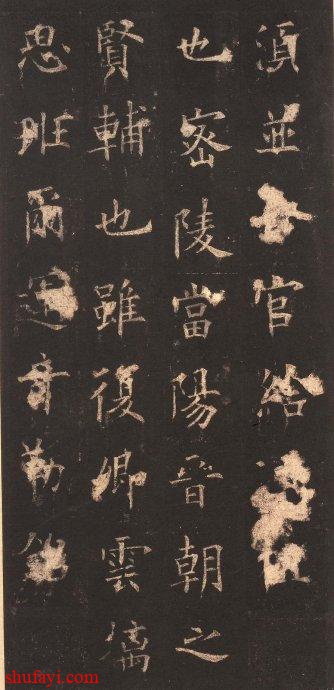 須並官給
也密陵當陽晉朝之
賢輔也雖復卿雲儁
思班爾運勒
shufayi.com